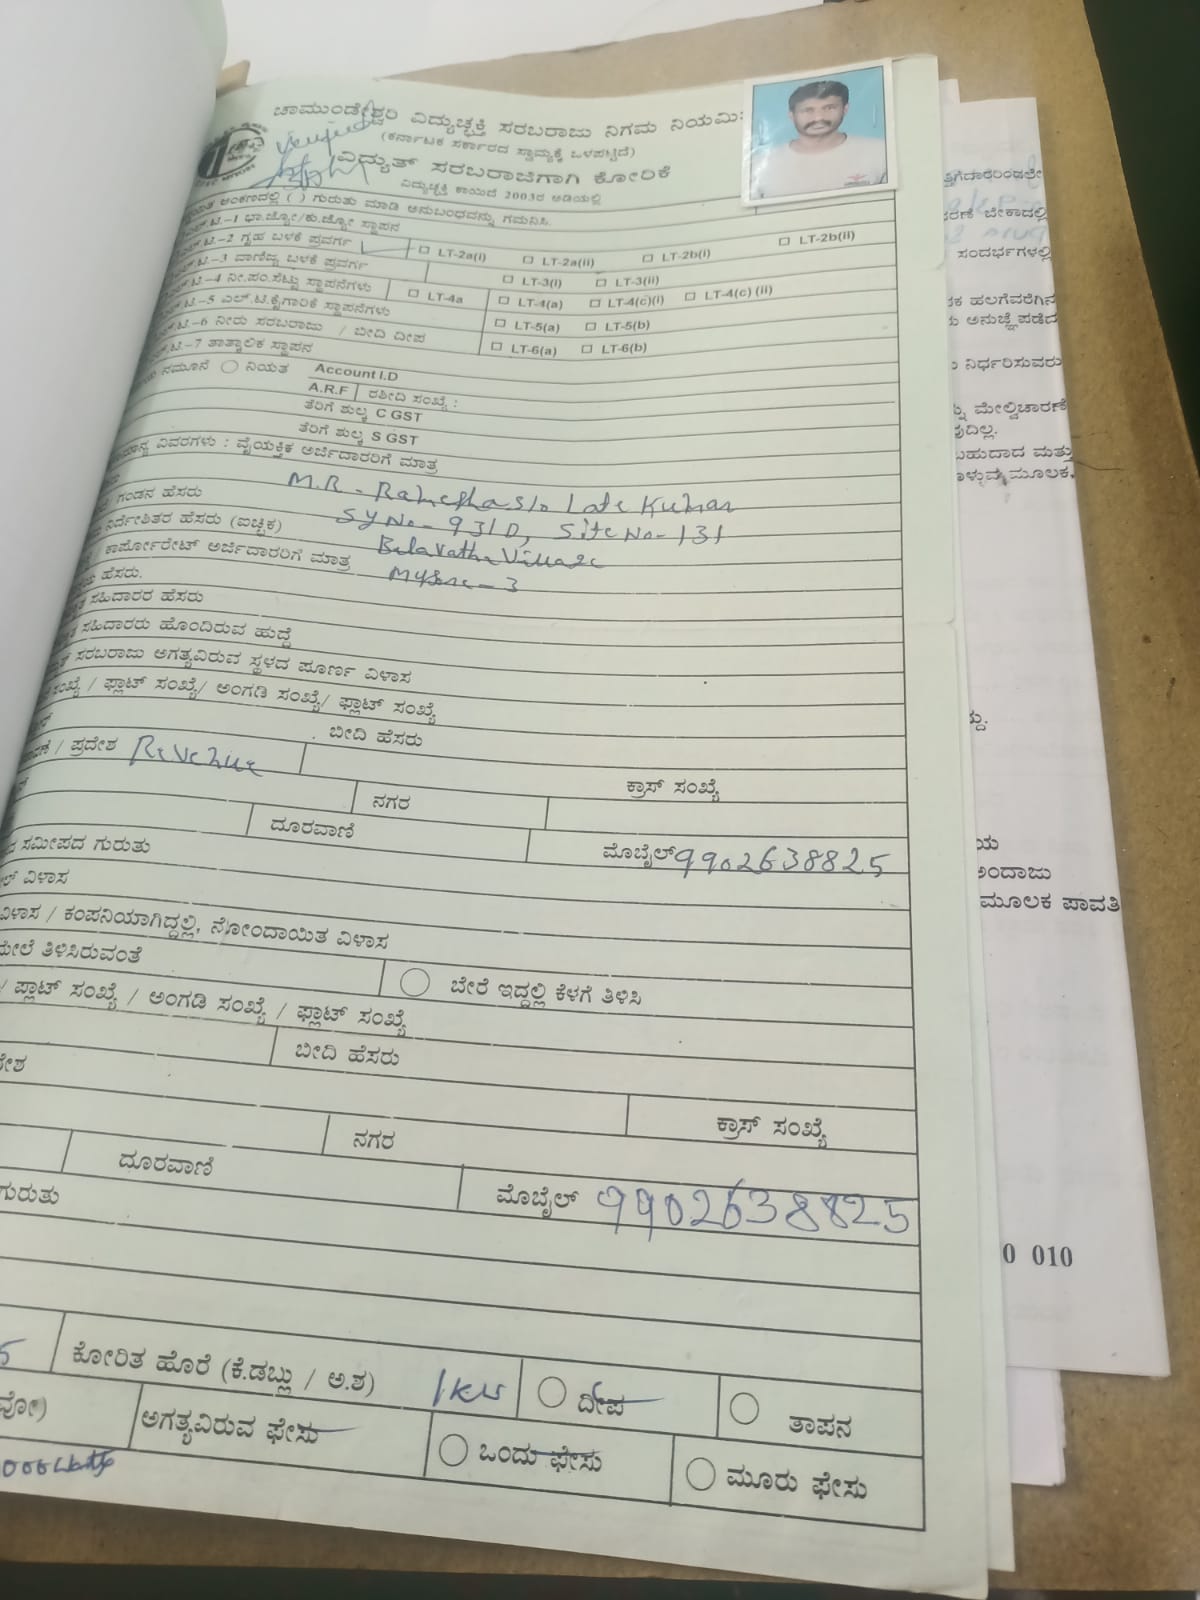 ಚಾಮುಂಡೇಶ್ವರಿ ವಿದ್ಯುಚ್ಛಕ್ತಿ ಸರಬರಾಜು ನಿಗಮ ನಿಯಮಿ
(ಕರ್ನಾಟಕ ಸರ್ಕಾರದ ಸ್ವಾಮ್ಯಕ್ಕೆ ಒಳಪಟ್ಟಿದೆ)
ವಿದ್ಯುತ್ ಸರಬರಾಜಿಗಾಗಿ ಕೋರಿಕೆ
ವಿದ್ಯುಚ್ಛಕ್ತಿ ಕಾಯಿದೆ 2003ರ ಅಡಿಯಲ್ಲಿ
ಅಂಕಣದಲ್ಲಿ ( ) ಗುರುತು ಮಾಡಿ ಅನುಬಂಧವನ್ನು ಗಮನಿಸಿ.
-1 ಭಾ.ಜ್ಯೋ/ಕು.ಜ್ಯೋ ಸ್ಥಾಪನ
-2 ಗೃಹ ಬಳಕೆ ಪ್ರವರ್ಗ LT-2a(i) LT-2a(ii) LT-2b(i) LT-2b(ii)
-3 ವಾಣಿಜ್ಯ ಬಳಕೆ ಪ್ರವರ್ಗ LT-3(i) LT-3(ii)
-4 ನೀ.ಪಂ.ಸೆಟ್ಟು ಸ್ಥಾಪನೆಗಳು LT-4a LT-4(a) LT-4(c)(i) LT-4(c) (ii)
-5 ಎಲ್.ಟಿ.ಕೈಗಾರಿಕೆ ಸ್ಥಾಪನೆಗಳು LT-5(a) LT-5(b)
-6 ನೀರು ಸರಬರಾಜು / ಬೀದಿ ದೀಪ LT-6(a) LT-6(b)
-7 ತಾತ್ಕಾಲಿಕ ಸ್ಥಾಪನ
ನಮೂನೆ ನಿಯತ Account I.D
A.R.F ರಶೀದಿ ಸಂಖ್ಯೆ :
ತೆರಿಗೆ ಶುಲ್ಕ C GST
ತೆರಿಗೆ ಶುಲ್ಕ S GST
ವಿವರಗಳು : ವೈಯಕ್ತಿಕ ಅರ್ಜಿದಾರರಿಗೆ ಮಾತ್ರ
ಗಂಡನ ಹೆಸರು M.R- Ramesha S/o Late Kumar
ನಿರ್ದೇಶಿತರ ಹೆಸರು (ಐಚ್ಛಿಕ) SY No-931D, Site No-131
ಕಾರ್ಪೋರೇಟ್ ಅರ್ಜಿದಾರರಿಗೆ ಮಾತ್ರ Belavatha Village
ಹೆಸರು. Mysore-3
ಸಹಿದಾರರ ಹೆಸರು
ಸಹಿದಾರರು ಹೊಂದಿರುವ ಹುದ್ದೆ
ಸರಬರಾಜು ಅಗತ್ಯವಿರುವ ಸ್ಥಳದ ಪೂರ್ಣ ವಿಳಾಸ
ಸಂಖ್ಯೆ / ಫ್ಲಾಟ್ ಸಂಖ್ಯೆ/ ಅಂಗಡಿ ಸಂಖ್ಯೆ/ ಫ್ಲಾಟ್ ಸಂಖ್ಯೆ
ಬೀದಿ ಹೆಸರು
/ ಪ್ರದೇಶ Revenue
ಕ್ರಾಸ್ ಸಂಖ್ಯೆ
ನಗರ
ದೂರವಾಣಿ ಮೊಬೈಲ್ 9902638825
ಸಮೀಪದ ಗುರುತು
ವಿಳಾಸ
ವಿಳಾಸ / ಕಂಪನಿಯಾಗಿದ್ದಲ್ಲಿ, ನೋಂದಾಯಿತ ವಿಳಾಸ
ಮೇಲೆ ತಿಳಿಸಿರುವಂತೆ ಬೇರೆ ಇದ್ದಲ್ಲಿ ಕೆಳಗೆ ತಿಳಿಸಿ
/ ಪ್ಲಾಟ್ ಸಂಖ್ಯೆ / ಅಂಗಡಿ ಸಂಖ್ಯೆ / ಫ್ಲಾಟ್ ಸಂಖ್ಯೆ
ಬೀದಿ ಹೆಸರು
ಕ್ರಾಸ್ ಸಂಖ್ಯೆ
ನಗರ
ದೂರವಾಣಿ ಮೊಬೈಲ್ 9902638825
ಗುರುತು
5 ಕೋರಿತ ಹೊರೆ (ಕೆ.ಡಬ್ಲು / ಅ.ಶ) 1KW ದೀಪ ತಾಪನ
ಅಗತ್ಯವಿರುವ ಫೇಸು ಒಂದು ಫೇಸು ಮೂರು ಫೇಸು
ಬೇಕಾದಲ್ಲಿ
ಸಂದರ್ಭಗಳಲ್ಲಿ
ಹಲಗೆವರೆಗಿನ
ಅನುಜ್ಞೆ ಪಡೆದ
ನಿರ್ಧರಿಸುವರು
ಮೇಲ್ವಿಚಾರಣೆ
ಬಹುದಾದ ಮತ್ತು
ಮೂಲಕ,
ಅಂದಾಜು
ಮೂಲಕ ಪಾವತಿ
0 010